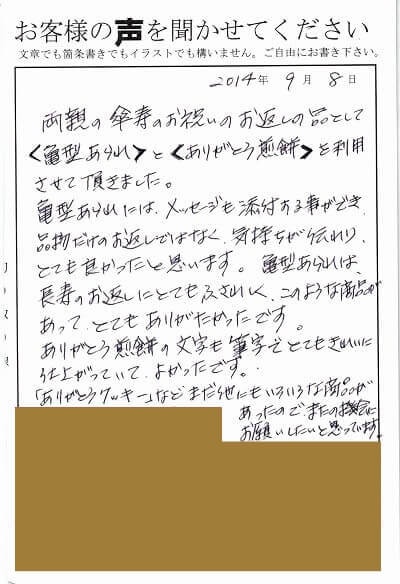 お客様の声を聞かせてください
文章でも箇条書きでもイラストでも構いません。ご自由にお書き下さい。
2014年 9月 8日
両親の傘寿のお祝いのお返しの品として
<亀型あられ>と<ありがとう煎餅>を利用
させて頂きました。
亀型あられには、メッセージも添付する事ができ、
品物だけのお返しではなく、気持ちが伝わり、
とても良かったと思います。亀型あられは、
長寿のお返しにとてもふさわしく、このような商品が
あって、とてもありがたかったです。
ありがとう煎餅の文字も筆字でとてもきれいに
仕上がっていて、よかったです。
「ありがとうクッキー」などまだ他にもいろいろな商品が
あったので、またの機会に
お願いしたいと思っています。